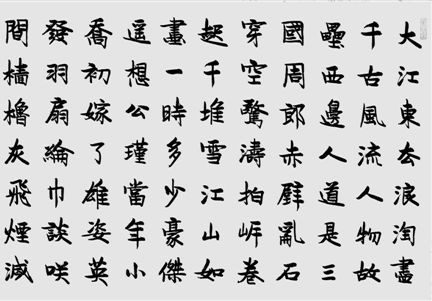 大江東厺浪淘盡
千古風流人物故
壘西邊人道是三
國周郎赤壁亂石
穿空驚濤拍岸卷
起千堆雪江山如
畫一時多少豪傑
遥想公瑾當年小
喬初嫁了雄姿英
發羽扇綸巾談咲
間檣櫓灰飛煙滅